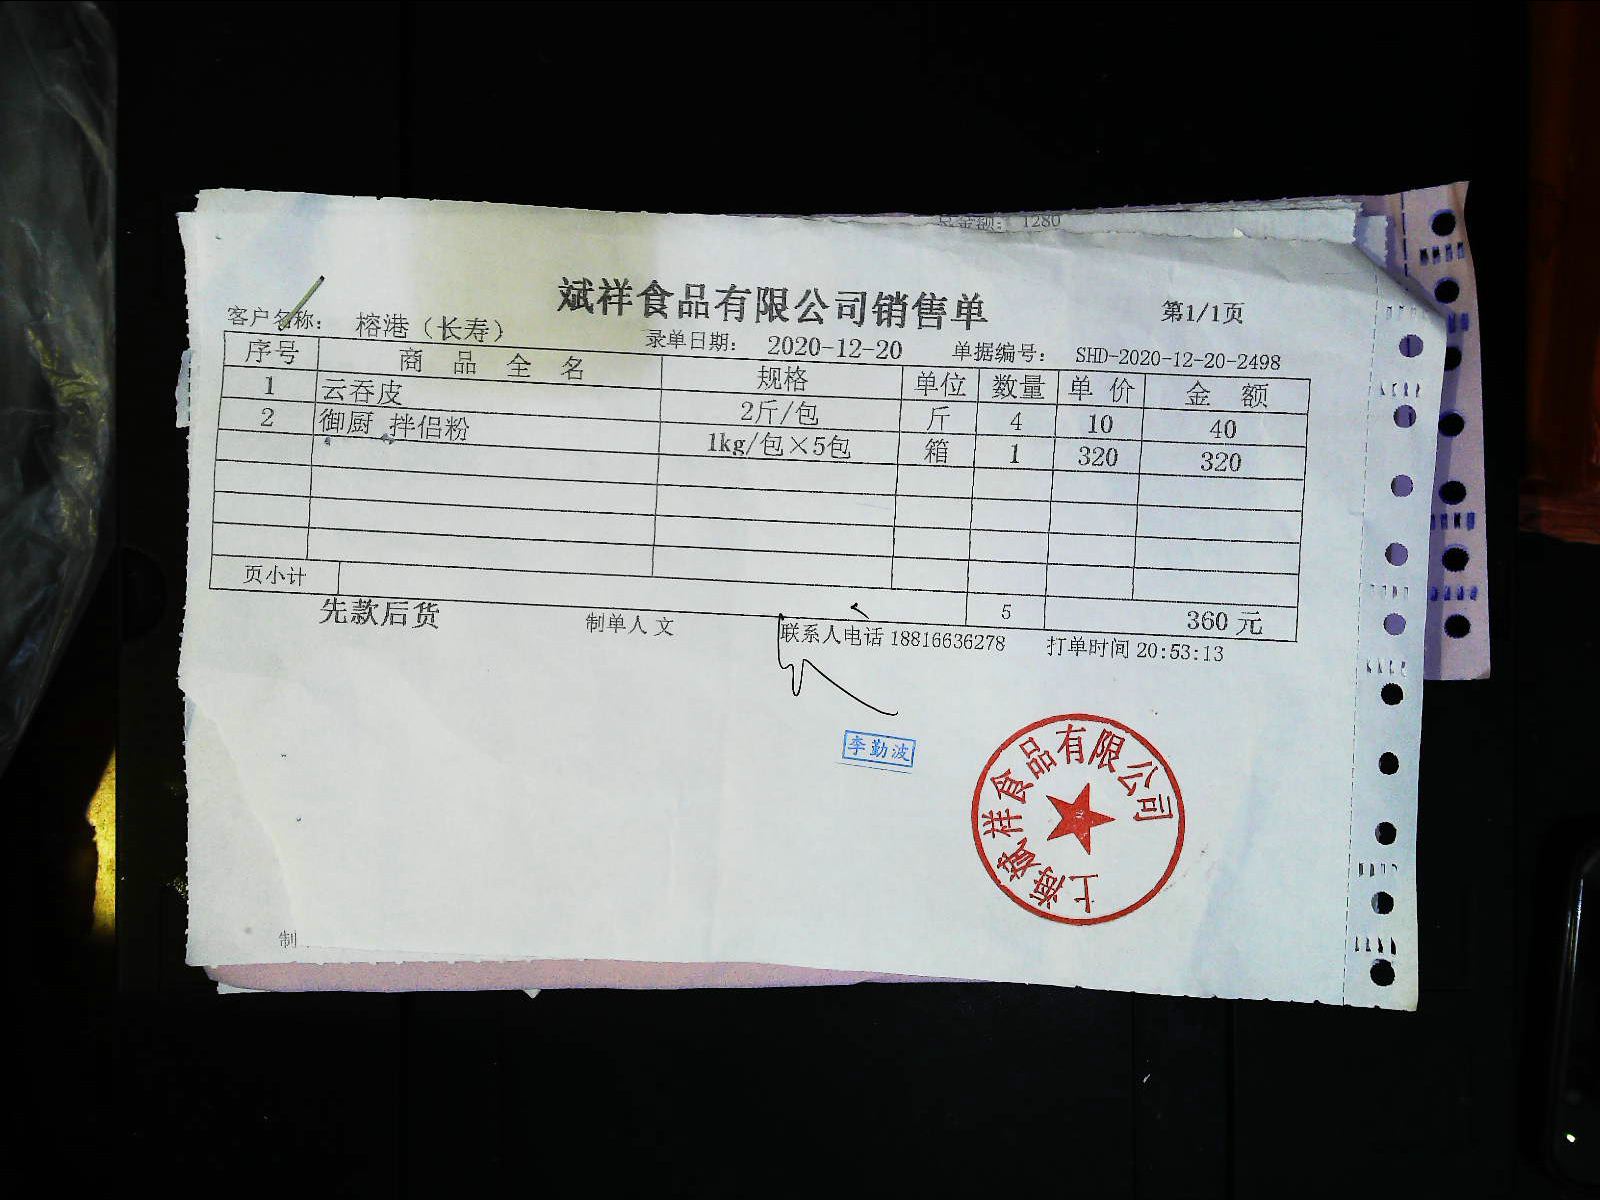 总金额: 1280
斌祥食品有限公司销售单
第1/1页
客户名称: 榕港（长寿） 录单日期: 2020-12-20 单据编号: SHD-2020-12-20-2498
序号 商 品 全 名 规格 单位 数量 单 价 金 额
1 云吞皮 2斤/包 斤 4 10 40
2 御厨 拌侣粉 1kg/包×5包 箱 1 320 320
页小计 5 360 元
先款后货 制单人 文 联系人电话 18816636278 打单时间 20:53:13
李勤波
上海斌祥食品有限公司
制